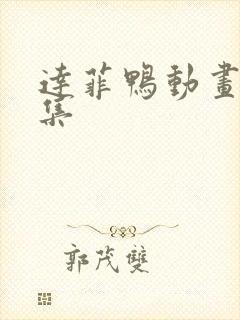 達菲鴨動畫
集
郭茂雙